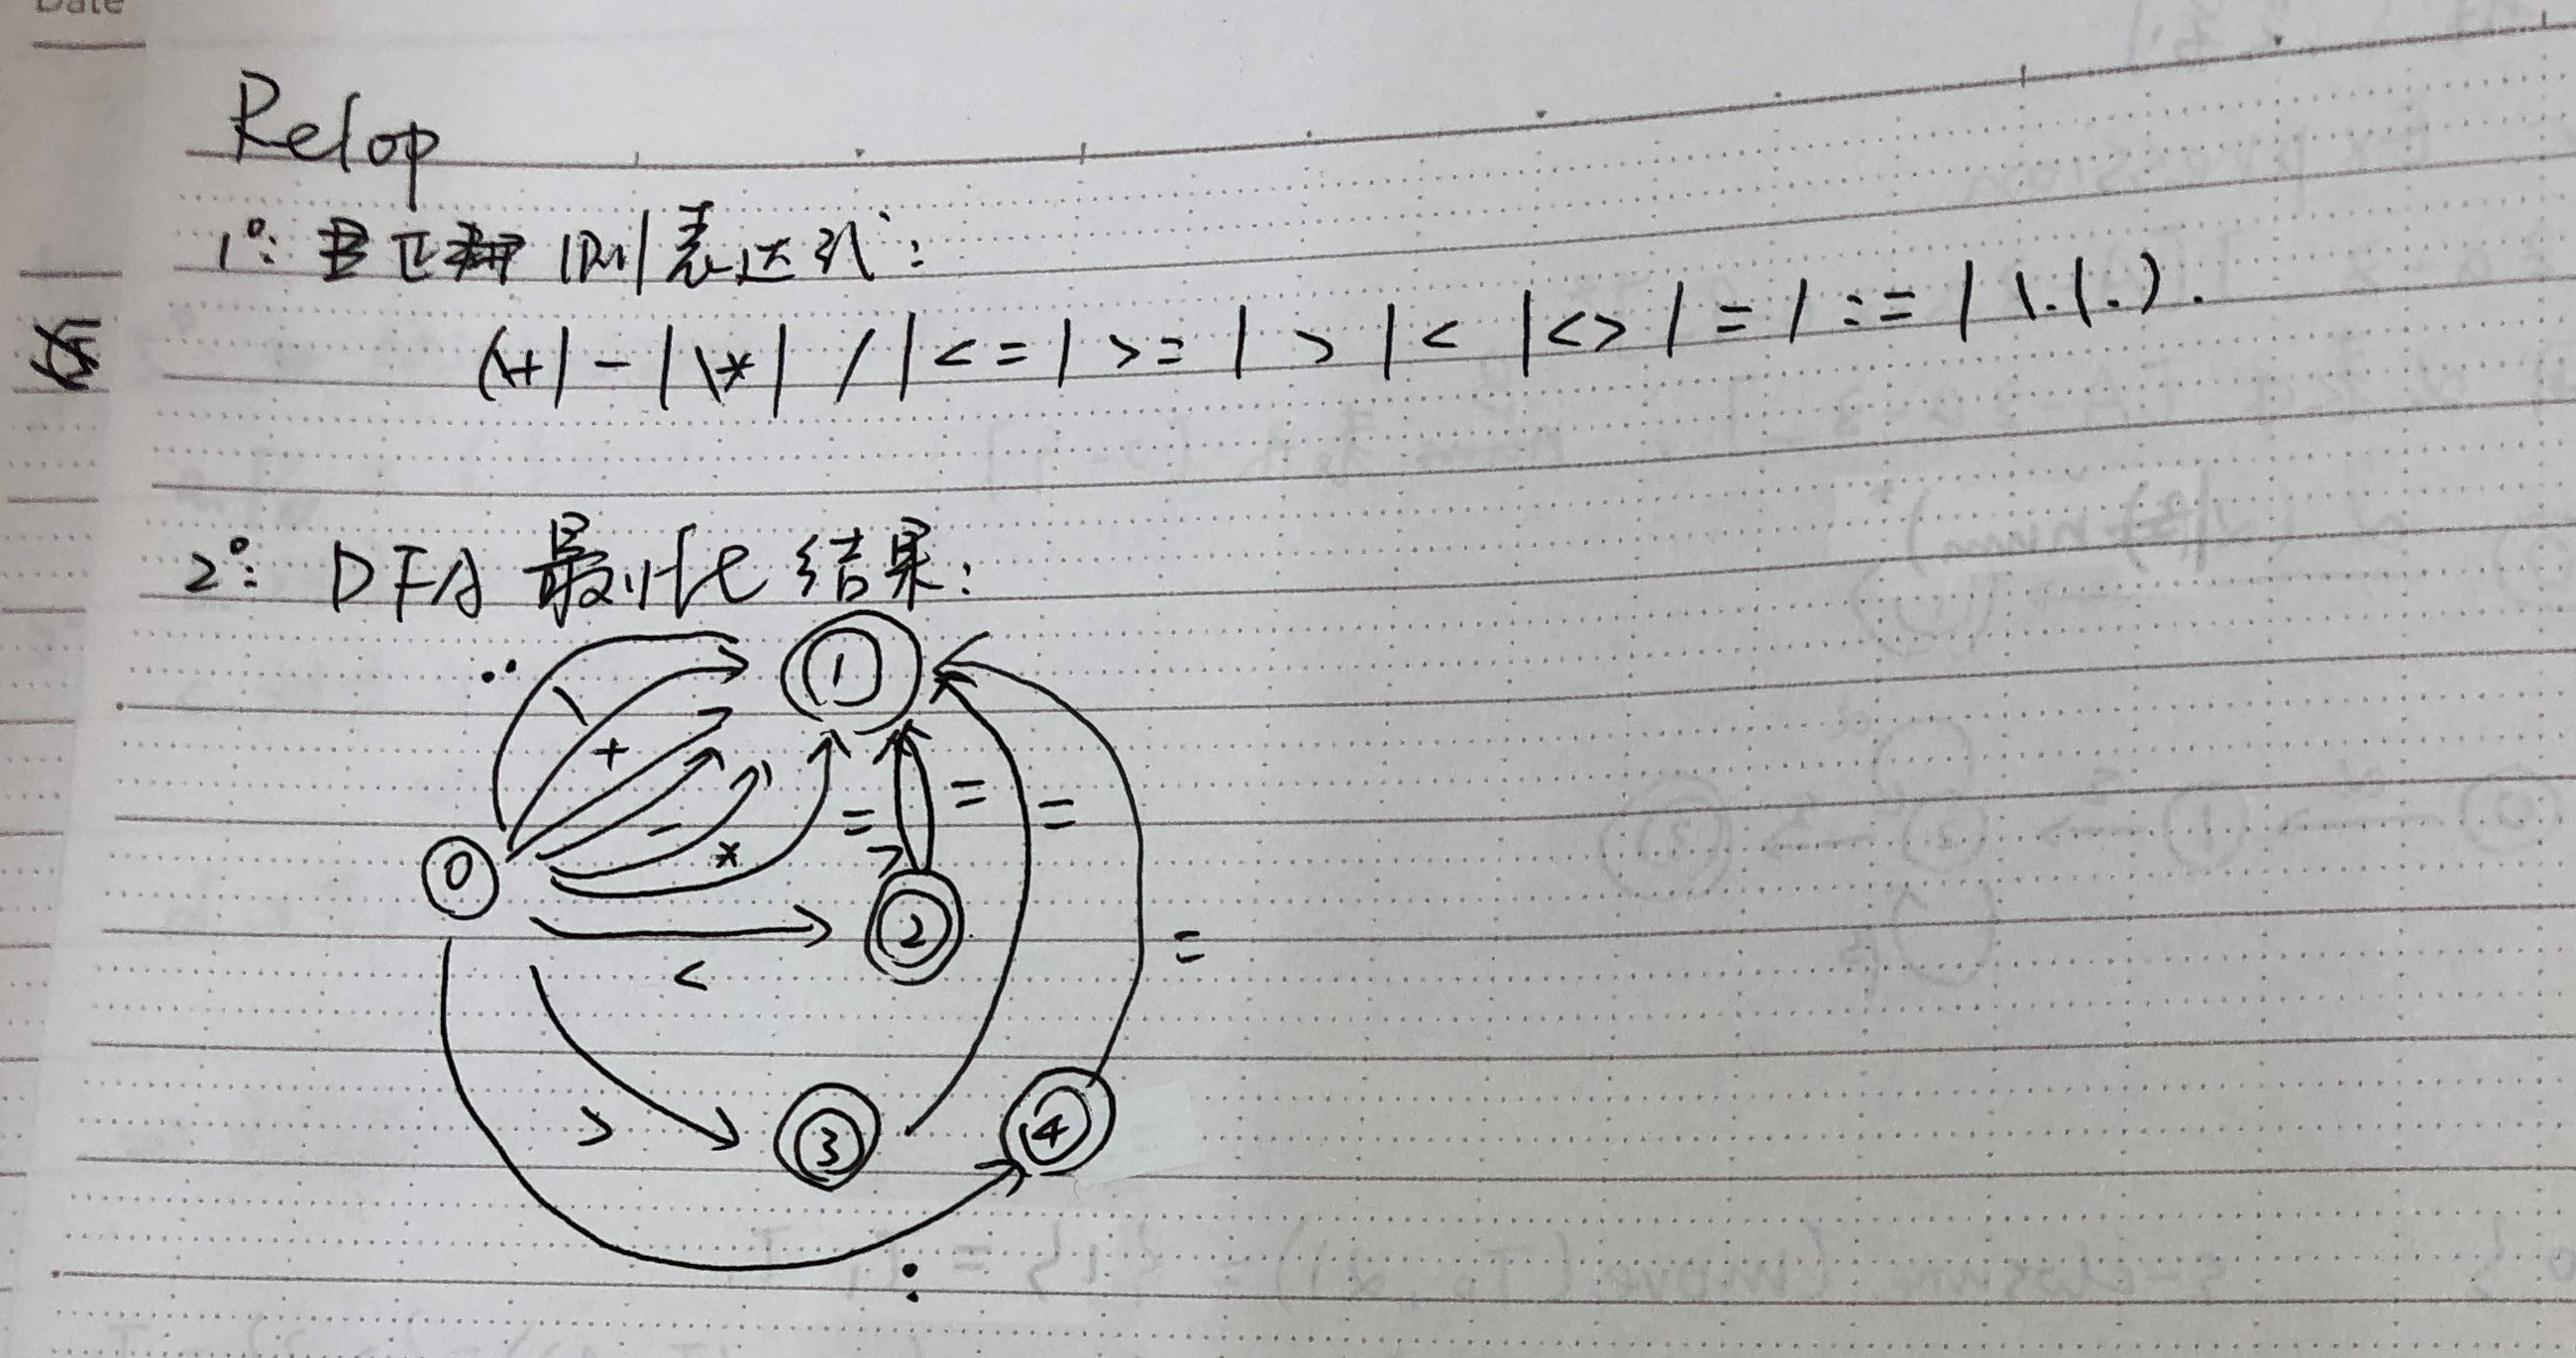 Date
Relop
1°: 正则表达式:
(\+|-|\*|/|<=|>=|>|<|<>|=|:=|\.(.).
2°: DFA最小化结果:
.. 1
\
+
- = = =
*
0 >
2
< =
> 3 4
: